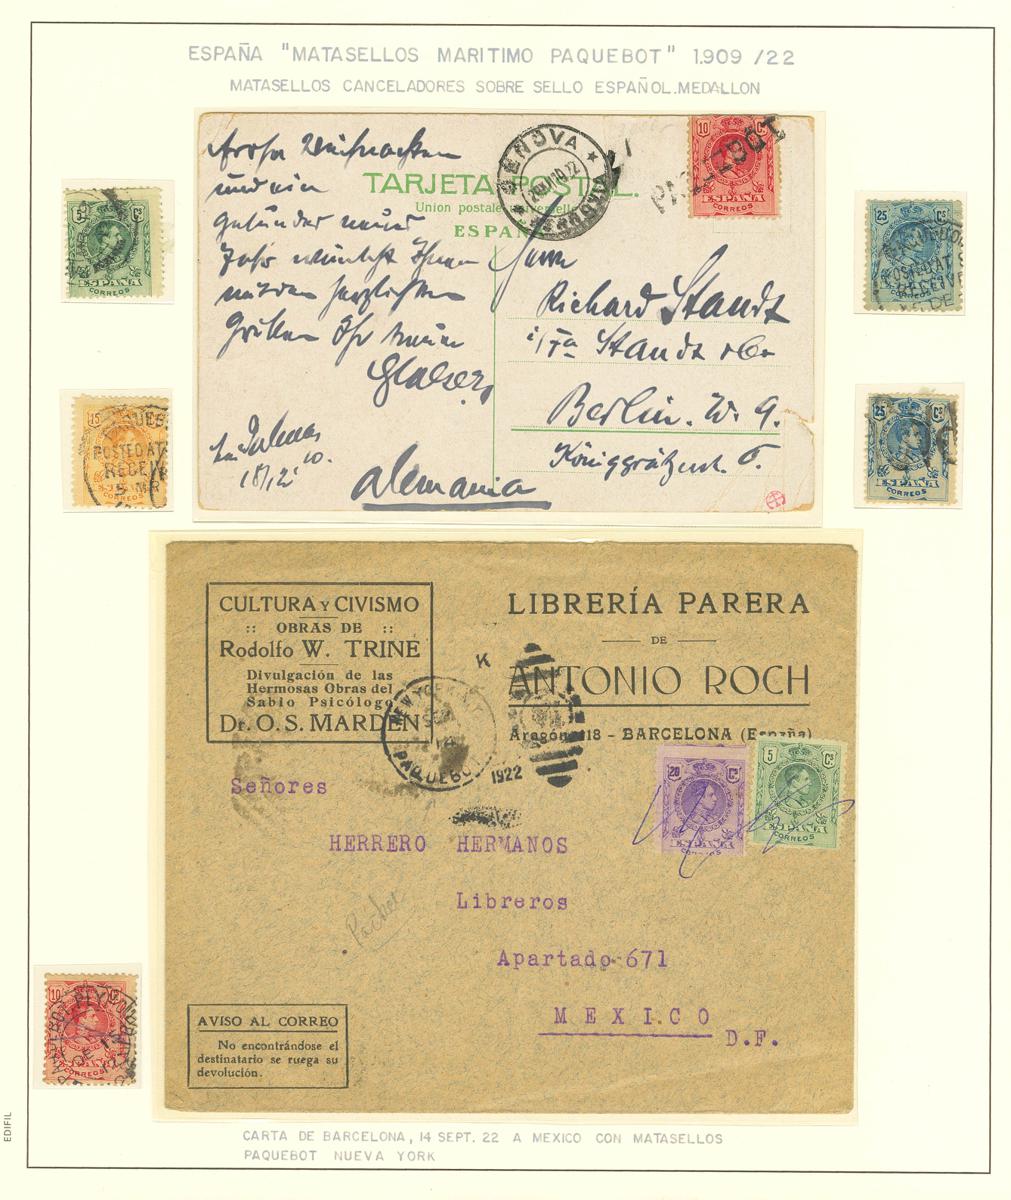 ESPAÑA "MATASELLOS MARITIMO PAQUEBOT" 1.909 /22
MATASELLOS CANCELADORES SOBRE SELLO ESPAÑOL.MEDALLON
5 Cs
ESPAÑA
CORREOS
15
PAQUEB
POSTED AT
RECEIV
5 MR
TARJETA POSTAL.
Union postale universelle
ESPAÑA
GENOVA
FERROVIA
PAQUEBOT
10 Cs
ESPAÑA
CORREOS
Frohe Weihnachten
und ein
gesundes neues
Jahr wünscht Ihnen
mit den herzlichsten
Grüßen Ihr
Glaeser
Las Palmas
18/12 10.
Herrn
Richard Staudt
i/Fa Staudt & Co
Berlin. W. 9.
Königgrätzerstr. 6.
Alemania
25 Cs
POSTED AT
RECEIVE
DE
ESPAÑA
CORREOS
25 Cs
ESPAÑA
CORREOS
CULTURA Y CIVISMO
:: OBRAS DE ::
Rodolfo W. TRINE
Divulgación de las
Hermosas Obras del
Sabio Psicólogo
Dr. O. S. MARDEN
LIBRERÍA PARERA
DE
ANTONIO ROCH
Aragón, 118 - BARCELONA (España)
K
NEW YORK N.Y.
SEP
PAQUEBOT
1922
20 Cs
ESPAÑA
CORREOS
5 Cs
ESPAÑA
CORREOS
Señores
HERRERO HERMANOS
Libreros
Apartado 671
MEXICO
D.F.
Packet
AVISO AL CORREO
No encontrándose el
destinatario se ruega su
devolución.
10 Cs
DE 15
ESPAÑA
CORREOS
CARTA DE BARCELONA, 14 SEPT. 22 A MEXICO CON MATASELLOS
PAQUEBOT NUEVA YORK
EDIFIL